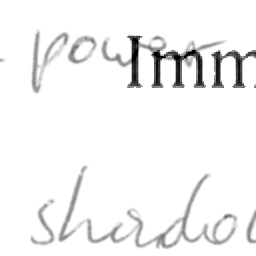 power Imm
shado